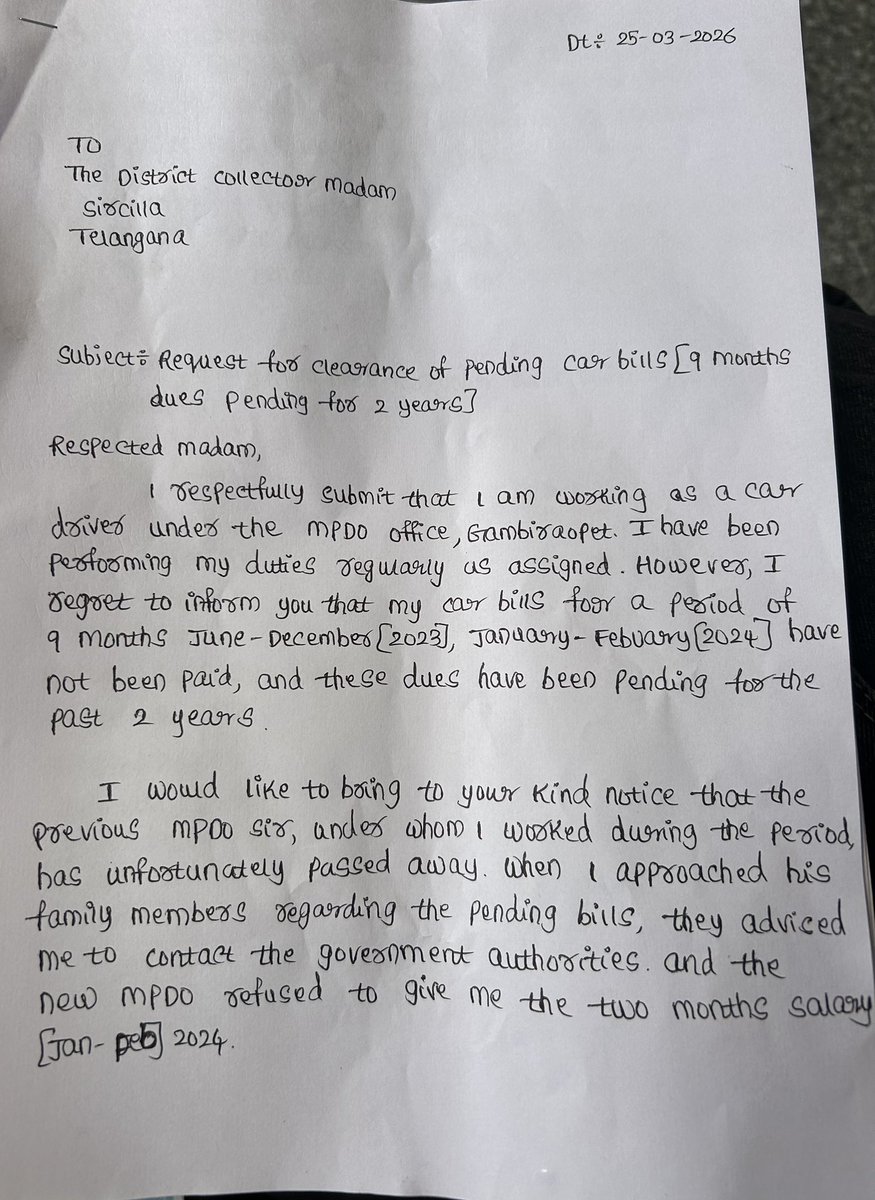 Dt÷ 25-03-2026
TO
The District collectoor madam
Sircilla
Telangana
Subject÷ Request for clearance of pending car bills [9 months
dues pending for 2 years]
Respected madam,
I respectfully submit that I am working as a car
driver under the MPDO office, Gambiraopet. I have been
performing my duties regularly as assigned. However, I
regret to inform you that my car bills foor a period of
9 months June-December[2023], January-Febuary[2024] have
not been paid, and these dues have been pending for the
past 2 years.
I would like to bring to your kind notice that the
previous MPDO sir, under whom I worked during the period,
has unfortunately passed away. when I approached his
family members regarding the pending bills, they adviced
me to contact the government authorities. and the
new MPDO refused to give me the two months salary
[Jan-Feb] 2024.